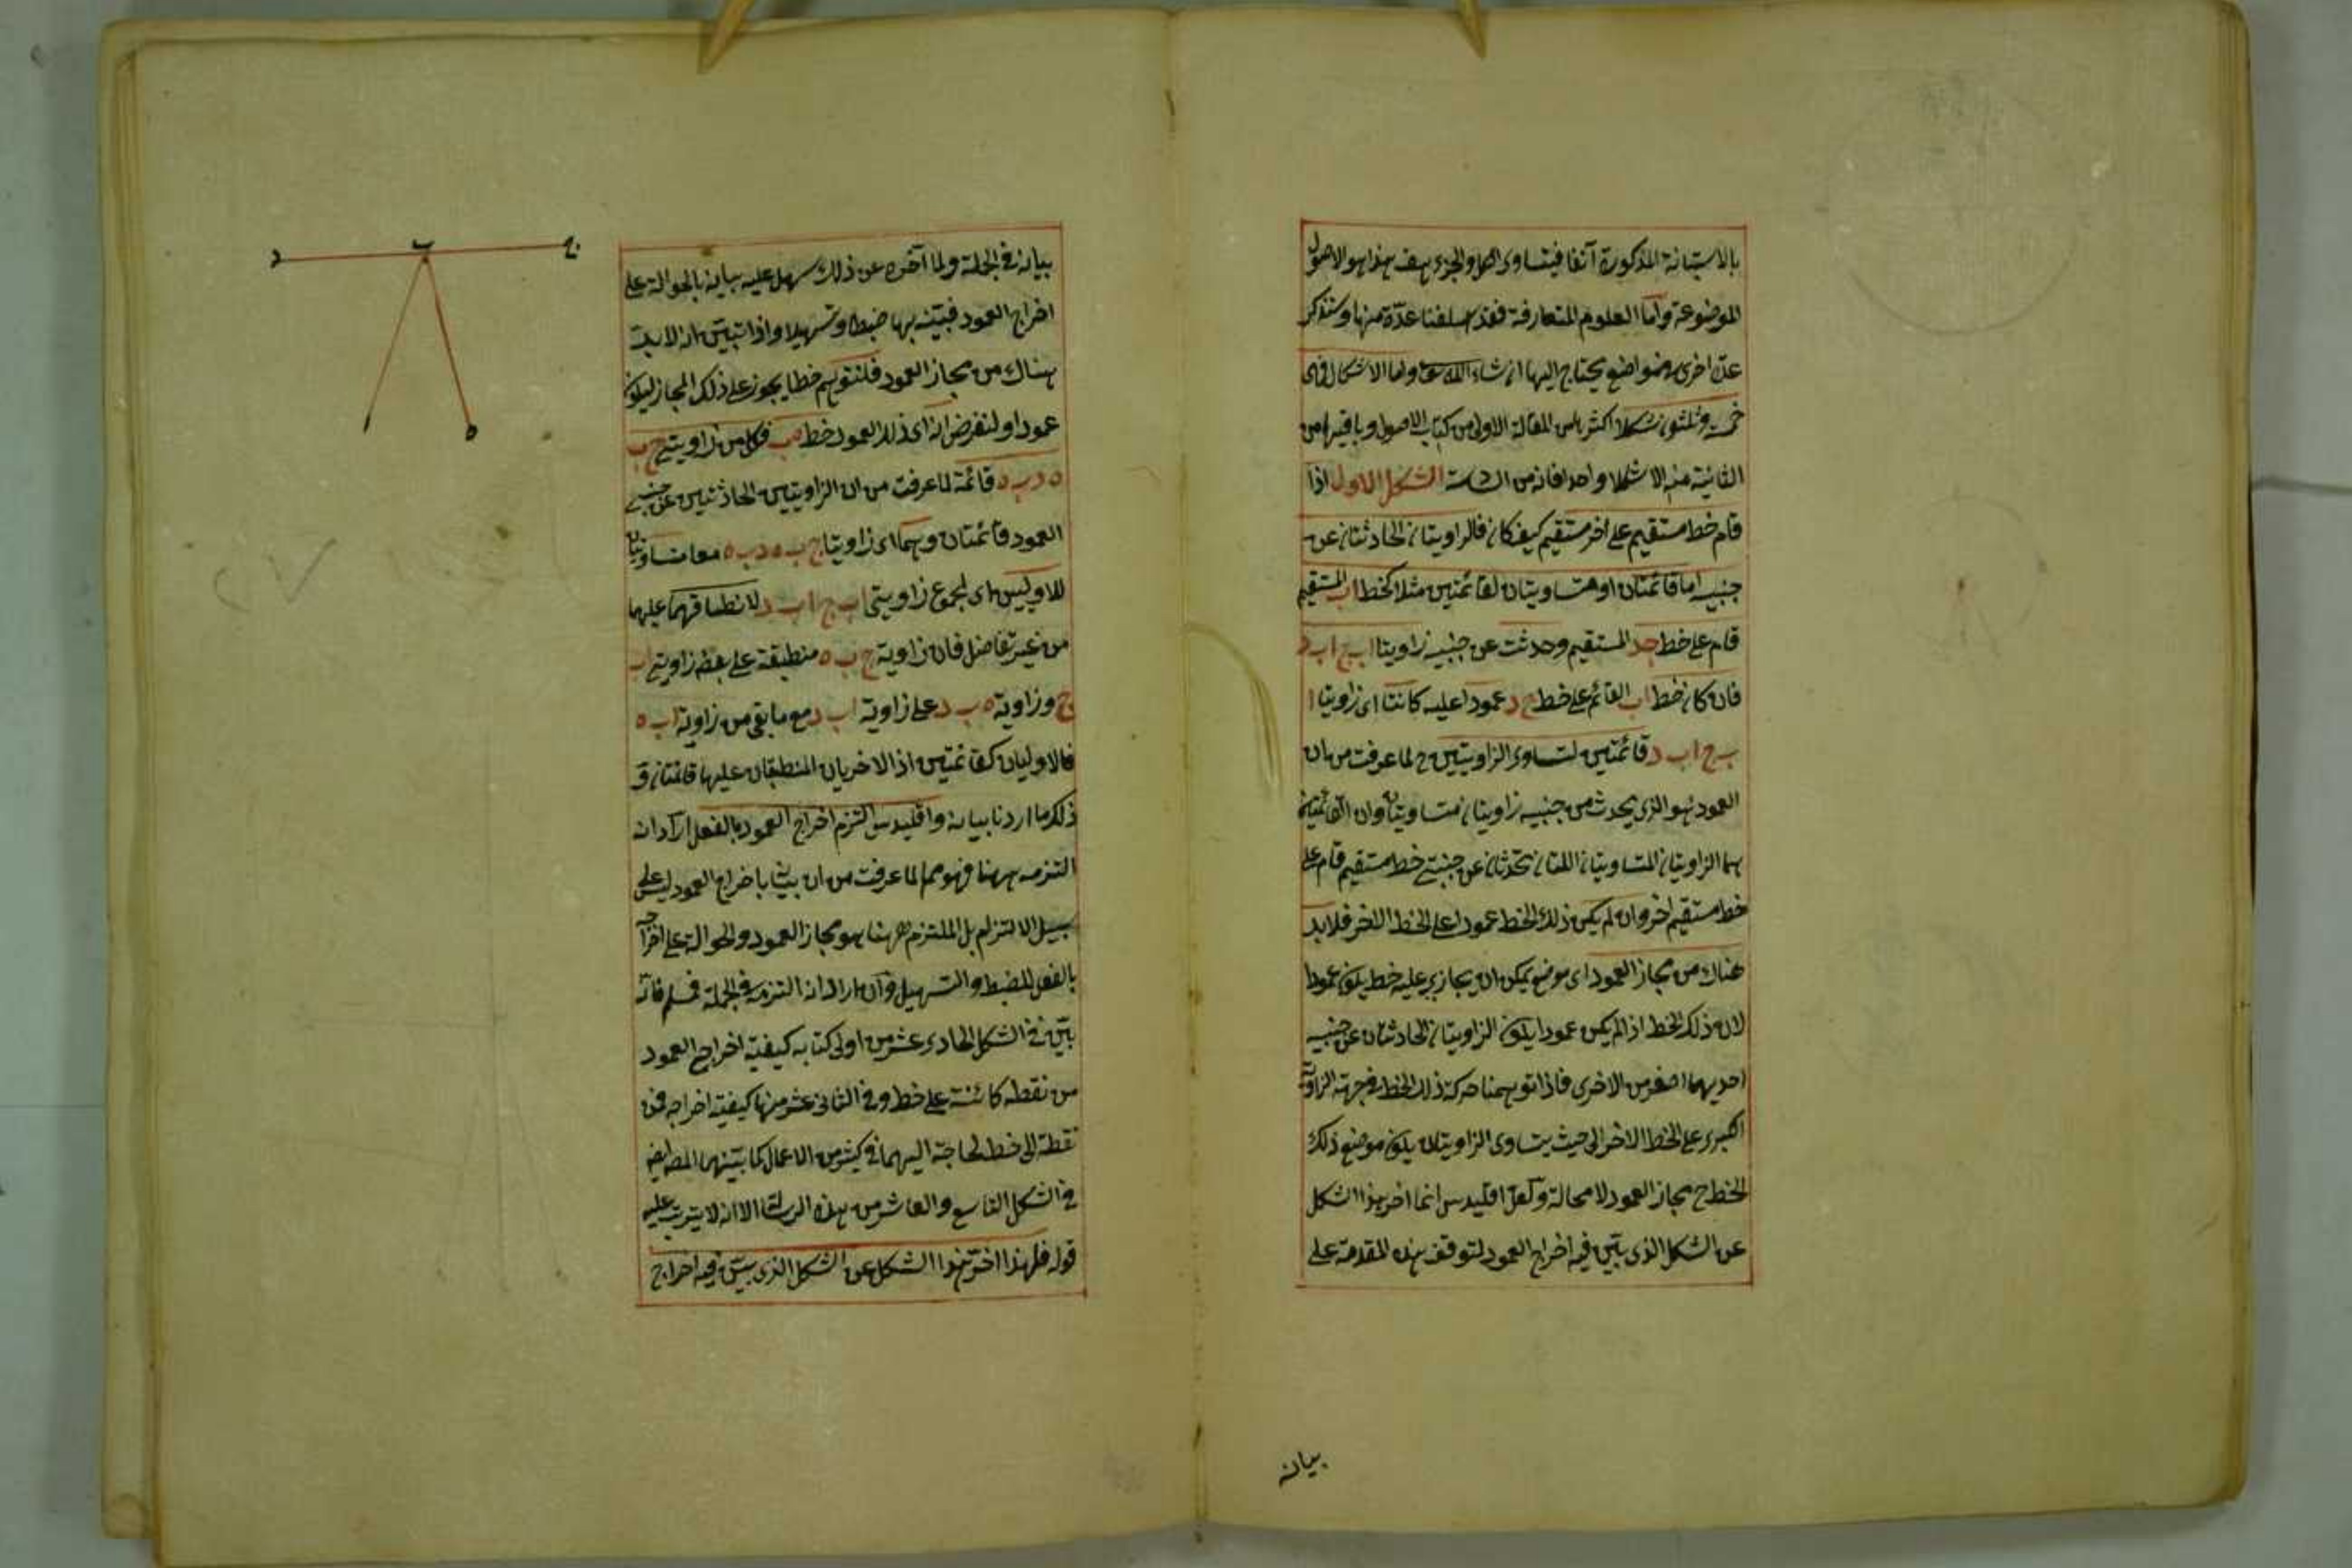 بالاستبانة المذكورة آنفا فيتساوى الكل والجزء هف هذا هو الاصول
الموضوعة واما العلوم المتعارفة فقد اسلفنا عدّة منها وسنذكر
عدة اخرى فى مواضع يحتاج اليها ان شاء الله تعالى واما الاشكال فهى
خمسة وثلثون شكلا اكثرها من المقالة الاولى من كتاب الاصول وباقيها من
الثانية منه الا شكلا واحدا فانه من الثالثة الشكل الاول اذا
قام خط مستقيم على اخر مستقيم كيف كان فالزاويتان الحادثتان عن
جنبيه اما قائمتان او متساويتان لقائمتين مثلا كخط اب المستقيم
قام على خط جد المستقيم وحدثت عن جنبيه زاويتا اب ج اب د
فان كان خط اب القائم على خط ج د عمودا عليه كانتا اى زاويتا ا
ب ج اب د قائمتين لتساوى الزاويتين ح لما عرفت من ان
العمود هو الذى يحدث من جنبيه زاويتان متساويتان وان القائمتين
هما الزاويتان المتساويتان اللتان تحدثان عن جنبتى خط مستقيم قام على
خط مستقيم اخر وان لم يكن ذلك الخط عمودا على الخط الاخر فلابد
هناك من مجاز العمود اى موضع يمكن ان يجاز عليه خط يكون عمودا
لان ذلك الخط اذا لم يكن عمودا يكون الزاويتان الحادثتان عن جنبيه
احديهما اصغر من الاخرى فاذا توهمنا حركة ذلك الخط فى جهة الزاوية
الكبرى على الخط الاخر الى حيث يتساوى الزاويتان يكون موضع ذلك
الخط ح مجاز العمود لا محالة ولعل اقليدس انما اخر هذا الشكل
عن الشكل الذى بيّن فيه اخراج العمود لتوقف هذه المقدمة على
بيانه
بيانه فى الجملة ولما اخره عن ذلك سهل عليه بيانه بالحوالة على
اخراج العمود فبيّنه بها ضبطا وتسهيلا واذا تبيّن انه لابد
هناك من مجاز العمود فلنتوهم خطا يجوز على ذلك المجاز ليكون
عمودا ولنفرض انه اى ذلك العمود خط ه ب فكل من زاويتى ج ب
ه د ب ه قائمة لما عرفت من ان الزاويتين الحادثتين عن جنبى
العمود قائمتان وهما اى زاويتا ج ب ه د ب ه معا متساويتان
للاوليين اى لمجموع زاويتى اب ج اب د لانطباقهما عليهما
من غير تفاضل فان زاوية ج ب ه منطبقة على بعض زاويتى اب
ج وزاوية ه ب د على زاوية اب د مع ما بقى من زاوية اب ه
فالاوليان كقائمتين اذ الاخريان المنطبقان عليها قائمتان و
ذلك ما اردنا بيانه واقليدس التزم اخراج العمود بالفعل ان اراد انه
التزمه ههنا فهو مم لما عرفت من ان بيانه باخراج العمود ليس على
سبيل الالتزام بل الملتزم ههنا هو مجاز العمود والحوالة على اخراجه
بالفعل للضبط والتسهيل وان اراد انه التزمه فى الجملة فمسلم فانه
بيّن فى الشكل الحادى عشر من اولى كتابه كيفية اخراج العمود
من نقطة كائنة على خط وفى الثانى عشر منها كيفية اخراجه من
نقطة الى خط لحاجة اليهما فى كثير من الاعمال كما بيّنهما المص ايضا
فى الشكل التاسع والعاشر من هذه الرسالة الا انه لا يترتب عليه
قوله فلهذا اخّر هذا الشكل عن الشكل الذى بيّن فيه اخراج
ج
ب
د
ا
ه